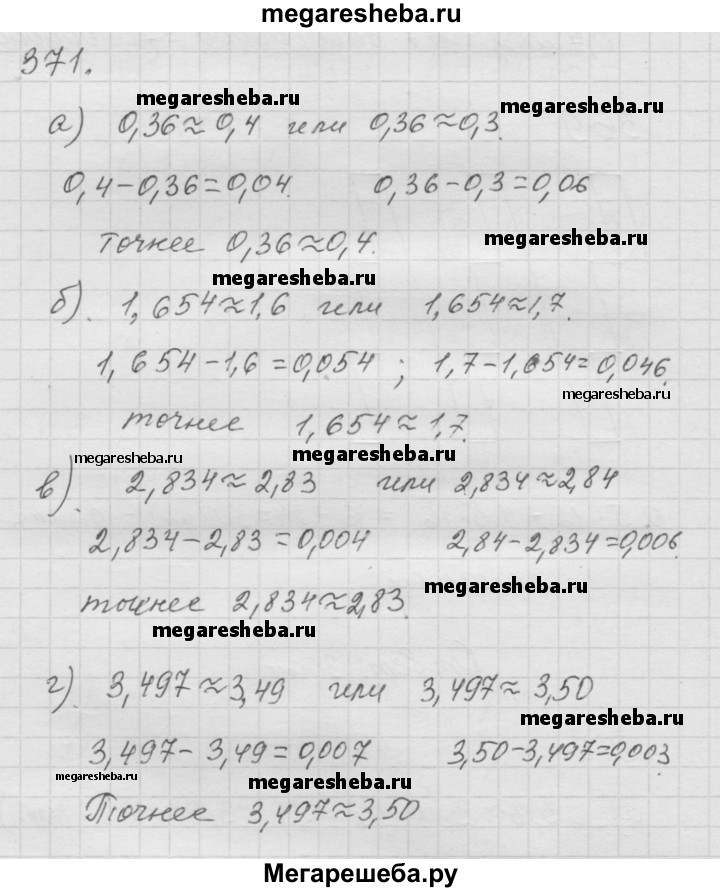 megaresheba.ru
371.
megaresheba.ru
megaresheba.ru
а) 0,36≈0,4 или 0,36≈0,3.
0,4-0,36=0,04. 0,36-0,3=0,06
точнее 0,36≈0,4.
megaresheba.ru
megaresheba.ru
б). 1,654≈1,6 или 1,654≈1,7.
1,654-1,6=0,054 ; 1,7-1,654=0,046.
megaresheba.ru
точнее 1,654≈1,7.
megaresheba.ru
megaresheba.ru
в). 2,834≈2,83 или 2,834≈2,84
2,834-2,83=0,004 2,84-2,834=0,006.
megaresheba.ru
точнее 2,834≈2,83.
megaresheba.ru
г). 3,497≈3,49 или 3,497≈3,50
megaresheba.ru
3,497-3,49=0,007 3,50-3,497=0,003
megaresheba.ru
megaresheba.ru
Точнее 3,497≈3,50
Мегарешеба.ру